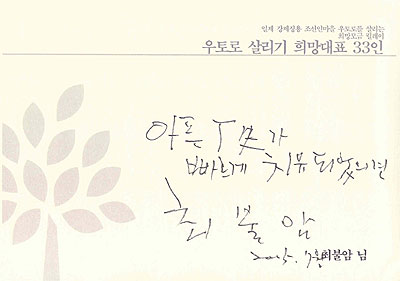 일제 강제징용 조선인마을 우토로를 살리는
희망모금 릴레이
우토로 살리기 희망대표 33인
아픈 가
빠르게 치유되었으면
최불암
2005. 최불암 님